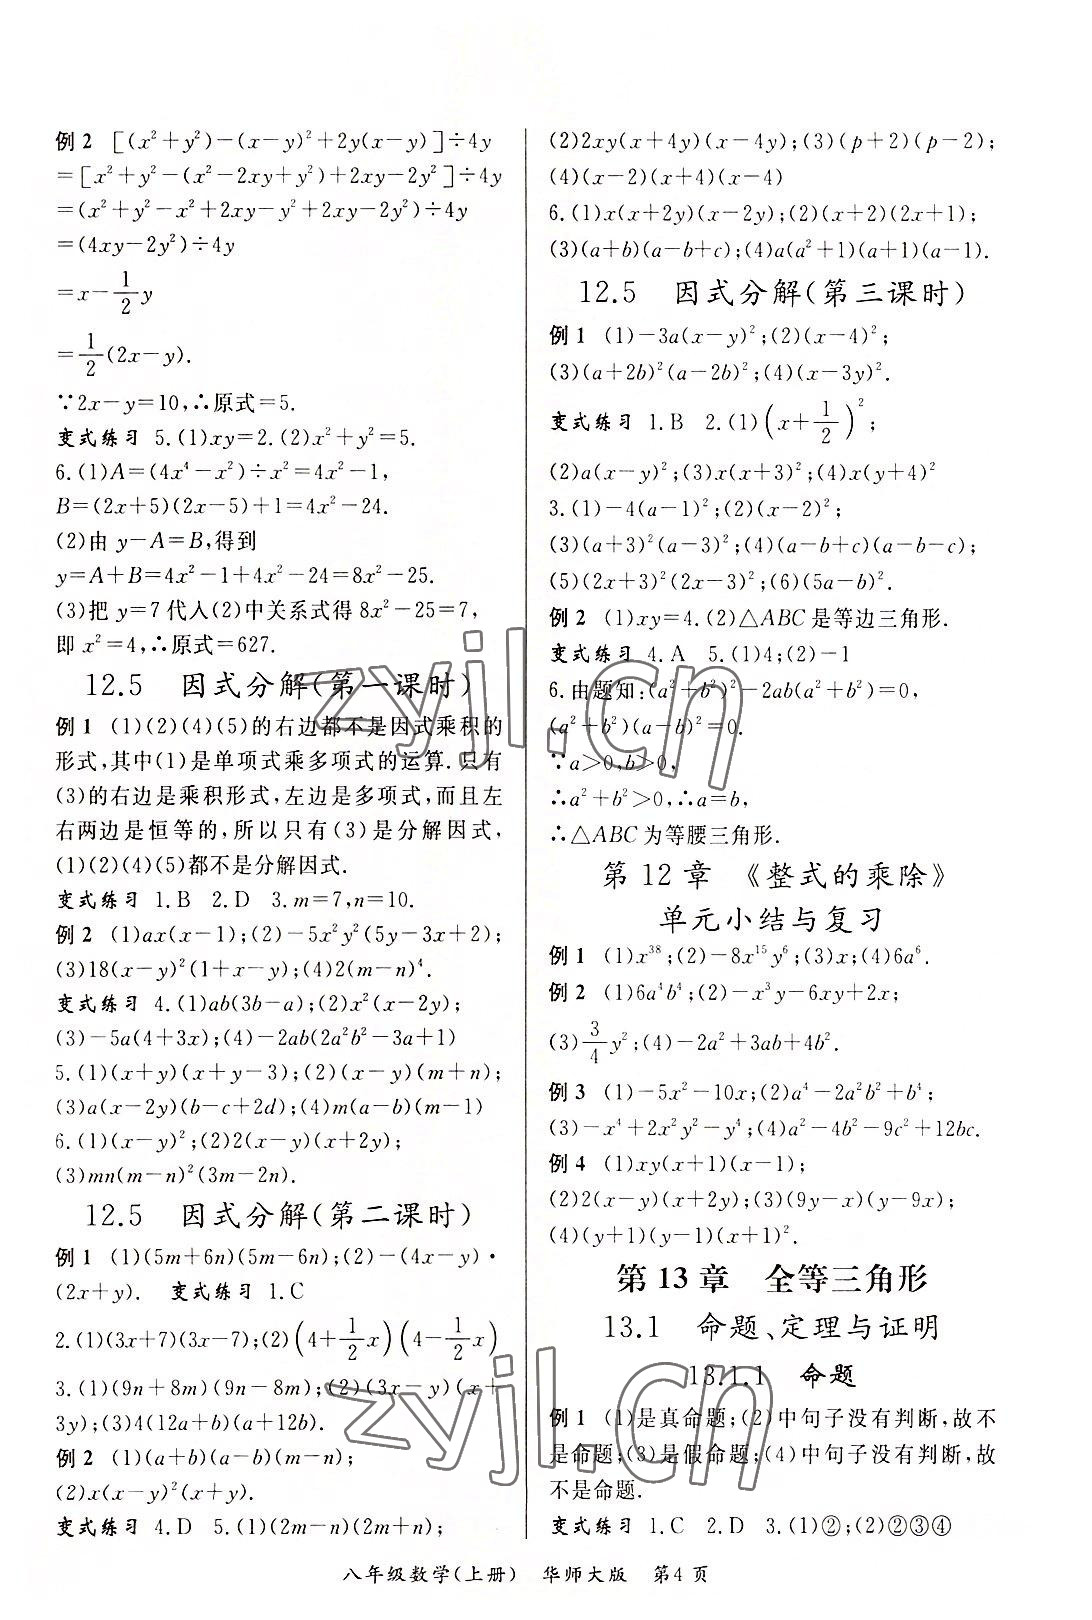 例2 [(x²+y²)-(x-y)²+2y(x-y)]÷4y
=[x²+y²-(x²-2xy+y²)+2xy-2y²]÷4y
=(x²+y²-x²+2xy-y²+2xy-2y²)÷4y
=(4xy-2y²)÷4y
=x-1/2y
=1/2(2x-y).
∵2x-y=10,∴原式=5.
变式练习 5.(1)xy=2.(2)x²+y²=5.
6.(1)A=(4x⁴-x²)÷x²=4x²-1,
B=(2x+5)(2x-5)+1=4x²-24.
(2)由 y-A=B,得到
y=A+B=4x²-1+4x²-24=8x²-25.
(3)把 y=7代入(2)中关系式得 8x²-25=7,
即 x²=4,∴原式=627.
12.5 因式分解(第一课时)
例1 (1)(2)(4)(5)的右边都不是因式乘积的
形式,其中(1)是单项式乘多项式的运算.只有
(3)的右边是乘积形式,左边是多项式,而且左
右两边是恒等的,所以只有(3)是分解因式,
(1)(2)(4)(5)都不是分解因式.
变式练习 1.B 2.D 3.m=7,n=10.
例2 (1)ax(x-1);(2)-5x²y²(5y-3x+2);
(3)18(x-y)²(1+x-y);(4)2(m-n)⁴.
变式练习 4.(1)ab(3b-a);(2)x²(x-2y);
(3)-5a(4+3x);(4)-2ab(2a²b²-3a+1)
5.(1)(x+y)(x+y-3);(2)(x-y)(m+n);
(3)a(x-2y)(b-c+2d);(4)m(a-b)(m-1)
6.(1)(x-y)²;(2)2(x-y)(x+2y);
(3)mn(m-n)²(3m-2n).
12.5 因式分解(第二课时)
例1 (1)(5m+6n)(5m-6n);(2)-(4x-y)·
(2x+y). 变式练习 1.C
2.(1)(3x+7)(3x-7);(2)(4+1/2x)(4-1/2x)
3.(1)(9n+8m)(9n-8m);(2)(3x-y)(x+
3y);(3)4(12a+b)(a+12b).
例2 (1)(a+b)(a-b)(m-n);
(2)x(x-y)²(x+y).
变式练习 4.D 5.(1)(2m-n)(2m+n);
(2)2xy(x+4y)(x-4y);(3)(p+2)(p-2);
(4)(x-2)(x+4)(x-4)
6.(1)x(x+2y)(x-2y);(2)(x+2)(2x+1);
(3)(a+b)(a-b+c);(4)a(a²+1)(a+1)(a-1).
12.5 因式分解(第三课时)
例1 (1)-3a(x-y)²;(2)(x-4)²;
(3)(a+2b)²(a-2b)²;(4)(x-3y)².
变式练习 1.B 2.(1)(x+1/2)²;
(2)a(x-y)²;(3)x(x+3)²;(4)x(y+4)²
3.(1)-4(a-1)²;(2)(x-2)²;
(3)(a+3)²(a-3)²;(4)(a-b+c)(a-b-c);
(5)(2x+3)²(2x-3)²;(6)(5a-b)².
例2 (1)xy=4.(2)△ABC是等边三角形.
变式练习 4.A 5.(1)4;(2)-1
6.由题知:(a²+b²)²-2ab(a²+b²)=0,
(a²+b²)(a-b)²=0.
∵a>0,b>0,
∴a²+b²>0,∴a=b,
∴△ABC为等腰三角形.
第12章 《整式的乘除》
单元小结与复习
例1 (1)x³⁸;(2)-8x¹⁵y⁶;(3)x;(4)6a⁶.
例2 (1)6a⁴b⁴;(2)-x³y-6xy+2x;
(3)3/4y²;(4)-2a²+3ab+4b².
例3 (1)-5x²-10x;(2)a⁴-2a²b²+b⁴;
(3)-x⁴+2x²y²-y⁴;(4)a²-4b²-9c²+12bc.
例4 (1)xy(x+1)(x-1);
(2)2(x-y)(x+2y);(3)(9y-x)(y-9x);
(4)(y+1)(y-1)(x+1)².
第13章 全等三角形
13.1 命题、定理与证明
13.1.1 命题
例1 (1)是真命题;(2)中句子没有判断,故不
是命题;(3)是假命题;(4)中句子没有判断,故
不是命题.
变式练习 1.C 2.D 3.(1)②;(2)②③④
八年级数学(上册) 华师大版 第4页
zyjl.cn
zyjl.cn